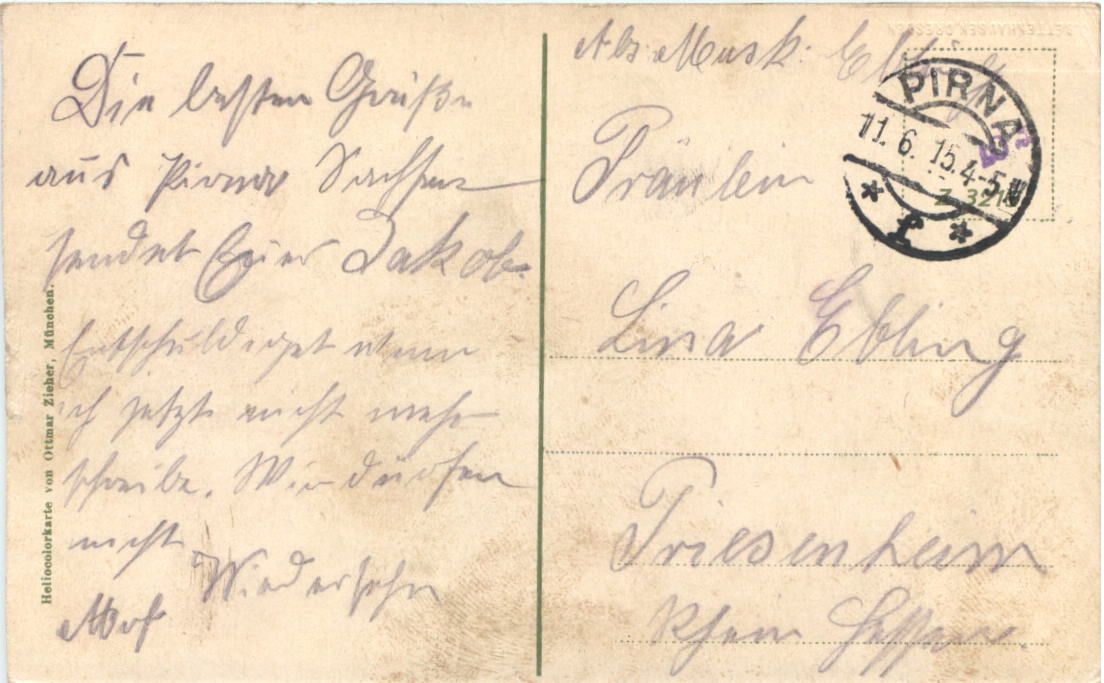 Die besten Grüße
aus Pirna Sachsen
sendet Euer Jakob.
Entschuldiget wenn
ich jetzt nicht mehr
schreibe. Wir dürfen
nicht
Wiedersehn
Heliocolorkarte von Ottmar Zieher, München.
Abs. Musk. Ebling
PIRNA
11. 6. 15. 4-5 N
* f *
Z 321
Fräulein
Lina Ebling
Friesenheim
Rhein Hessen.